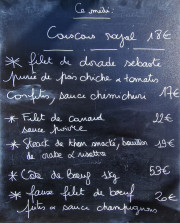 Ce midi:
Couscous royal 18€
* filet de dorade sébaste
purée de pois chiche & tomates
confites, sauce chimichuri 17€
* Filet de canard 22€
sauce poivre
* Steack de thon snacké, bouillon 19€
de
* Côte de Boeuf 1kg 53€
* fausse filet de boeuf 20€
frites & sauce champignons